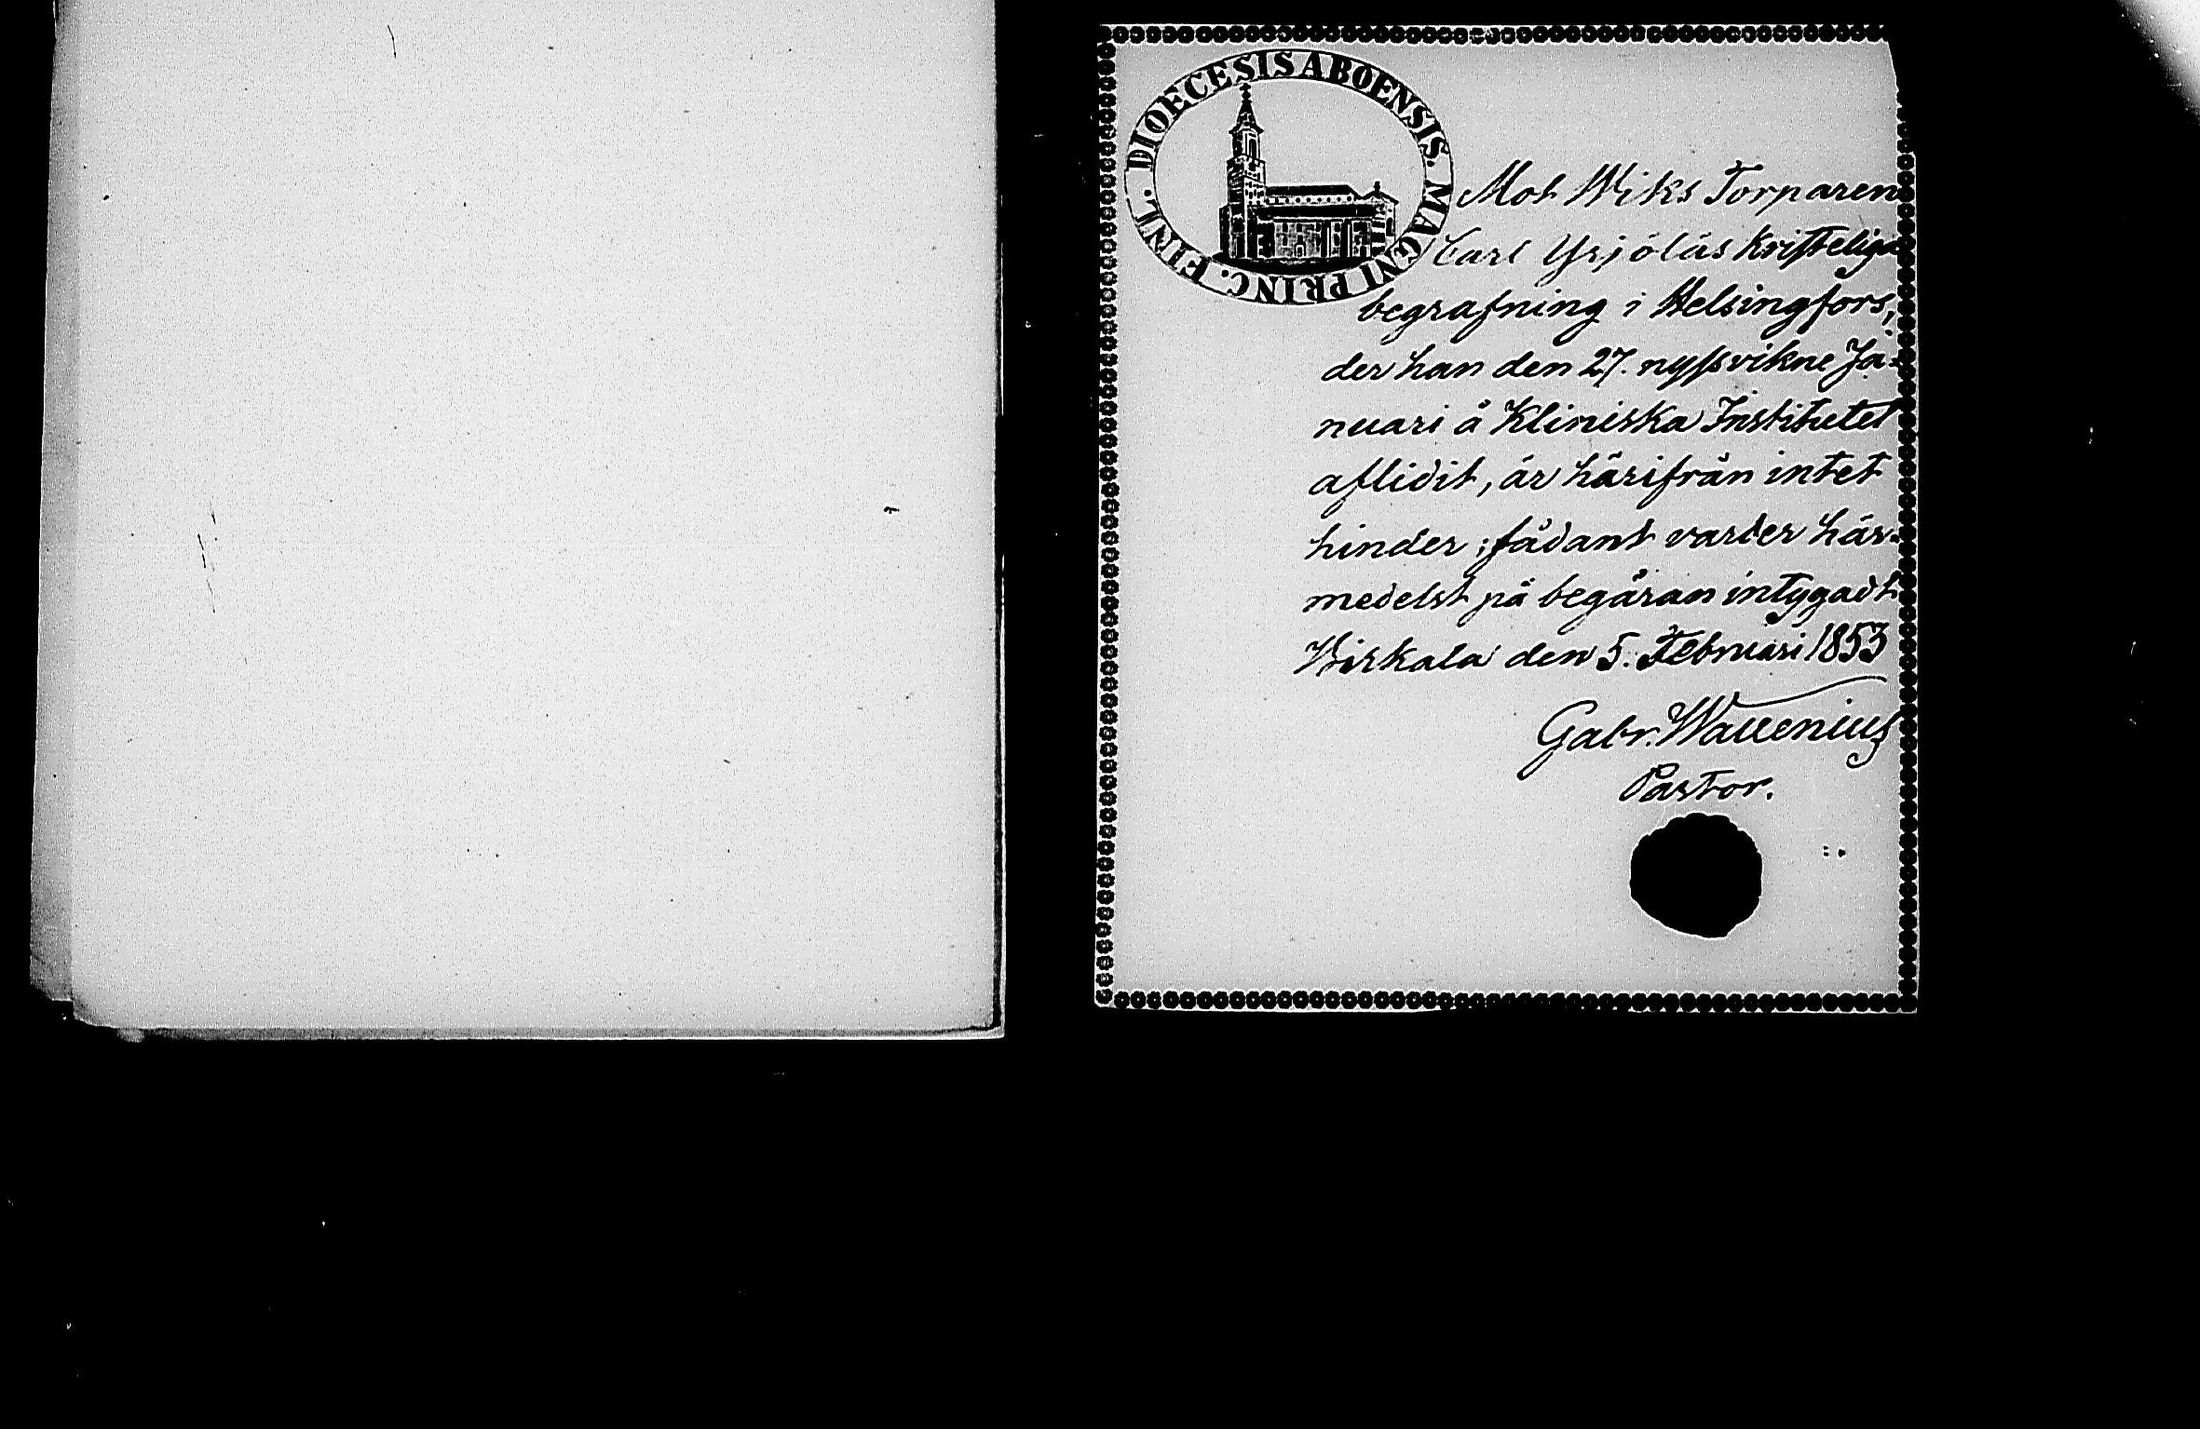 DIOECESIS ABOENSIS. MAGNI PRINC. FINL.
Mot Wiks Torparen
Carl Yrjöläs kristeliga
begrafning i Helsingfors,
der han den 27. nyssvikne Ja-
nuari å Kliniska Institutet
aflidit, är härifrån intet
hinder; sådant varder här-
medelst på begäran intygadt
Birkala den 5. Februari 1853
Gabr. Wallenius
Pastor.